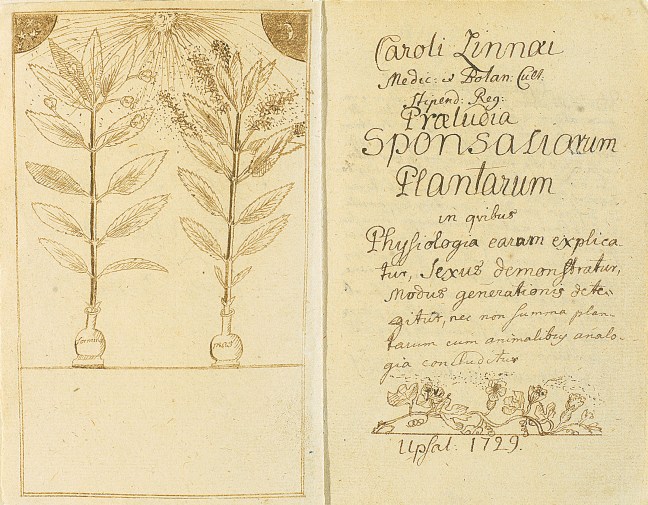 femina
mas
Caroli Linnæi
Medic: & Botan: Cult.
Stipend: Reg:
Præludia
SPONSALIARUM
Plantarum
in qvibus
Physiologia earum explica-
tur, Sexus demonstratur,
Modus generationis dete-
gitur, nec non summa plan-
tarum cum animalibus analo-
gia concluditur
Upsal. 1729.